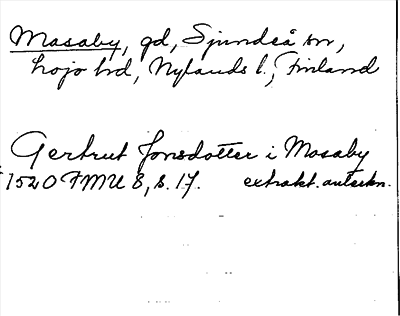 Masaby, gd, Sjundeå sn,
Lojo hd, Nylands l., Finland
Gertrut Jonsdotter i Masaby
1520 FMU 8, s. 17. extrakt. anteckn.